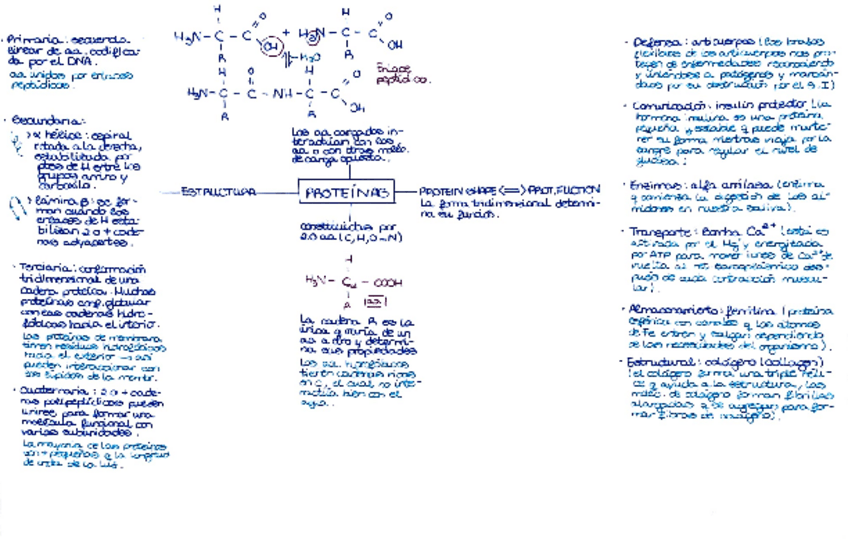 · Primaria: secuencia
linear de aa. codifica-
da por el DNA.
aa unidos por enlaces
peptídicos.
· Secundaria:
→ α hélice: espiral
rotada a la derecha,
estabilizada por
ptes de H entre los
grupos amino y
carboxilo.
→ lámina β: se for-
man cuando los
enlaces de H esta-
bilizan 2 o + cade-
nas adyacentes.
· Terciaria: conformación
tridimensional de una
cadena proteica. Muchas
proteínas emp. globular
con sus cadenas hidro-
fóbicas hacia el interior.
Las proteínas de membrana
tienen residuos hidrofóbicos
hacia el exterior → así
pueden interaccionar con
los lípidos de la membr.
· Cuaternaria: 2 o + cade-
nas polipeptídicas pueden
unirse para formar una
molécula funcional con
varias subunidades.
La mayoría de las proteínas
son + pequeñas q la longitud
de onda de la luz.
H
H₂N - C - C
O
OH
R
+
H
H₂N - C - C
O
OH
R
H₂O
Enlace
peptídico.
H
H₂N - C - C - NH - C - C
O
H
O
OH
R
R
Los aa cargados in-
teractúan con los
aa o con otras moléc.
de carga opuesta.
ESTRUCTURA
PROTEÍNAS
PROTEIN SHAPE ⟺ PROT. FUCTION
La forma tridimensional determi-
na su función.
constituidas por
20 aa (C, H, O - N)
H
H₂N - Cα - COOH
R
aa
La cadena R es la
única q varía de un
aa a otro y determi-
na sus propiedades
Los aa hidrofóbicos
tienen cadenas ricas
en C, el cual no inte-
ractúa bien con el
agua.
· Defensa: anticuerpos (los brazos
flexibles de los anticuerpos nos pro-
tegen de enfermedades reconociendo
y uniéndose a patógenos y marcán-
dolos por su destrucción por el S.I)
· Comunicación: insulin protector (la
hormona insulina es una proteína
pequeña y estable q puede mante-
ner su forma mientras viaja por la
sangre para regular el nivel de
glucosa.)
· Enzimas: alfa amilasa (enzima
q comienza la digestión de los al-
midones en nuestra saliva).
· Transporte: bomba Ca²⁺ (está es
activada por el Mg y energizada
por ATP para mover iones de Ca²⁺ de
vuelta al ret. sarcoplásmico des-
pués de cada contracción muscu-
lar).
· Almacenamiento: ferritina (proteína
esférica con canales q los átomos
de Fe entren y salgan dependiendo
de las necesidades del organismo).
· Estructural: colágeno (collagen)
(el colágeno forma una triple héli-
ce q ayuda a la estructura, las
moléc. de colágeno forman fibrillas
alargadas q se agregan para for-
mar fibras de colágeno).